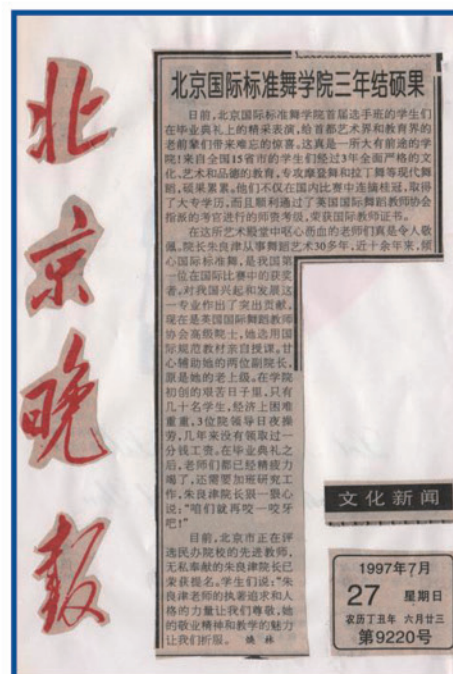 北京晚报
北京国际标准舞学院三年结硕果
日前,北京国际标准舞学院首届选手班的学生们
在毕业典礼上的精采表演,给首都艺术界和教育界的
老前辈们带来难忘的惊喜。这真是一所大有前途的学
院!来自全国15省市的学生们经过3年全面严格的文
化、艺术和品德的教育,专攻摩登和拉丁舞等现代舞
蹈,硕果累累。他们不仅在国内比赛中连摘桂冠,取得
了大专学历,而且顺利通过了英国国际舞蹈教师协会
指派的考官进行的师资考级,荣获国际教师证书。
在这所艺术殿堂中呕心沥血的老师们真是令人敬
佩。院长朱良津从事舞蹈艺术30多年,近十余年来,倾
心国际标准舞,是我国第
一位在国际比赛中的获奖
者。对我国兴起和发展这
一专业作出了突出贡献。
现在是英国国际舞蹈教师
协会高级院士,她选用国
际规范教材亲自授课。甘
心辅助她的两位副院长,
原是她的老上级。在学院
初创的艰苦日子里,只有
几十名学生,经济上困难
重重,3位院领导日夜操
劳,几年来没有领取过一
分钱工资。在毕业典礼之
后,老师们都已经精疲力
竭了,还需要加班研究工
作,朱良津院长狠一狠心
说:“咱们就再咬一咬牙
吧!”
目前,北京市正在评
选民办院校的先进教师,
无私奉献的朱良津院长已
荣获提名。学生们说:“朱
良津老师的执著追求和人
格的力量让我们尊敬,她
的敬业精神和教学的魅力
让我们折服。
文化新闻
1997年7月
27 星期日
农历丁丑年 六月廿三
第9220号